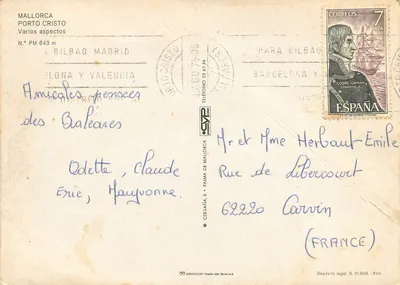 MALLORCA
PORTO CRISTO
Varios aspectos
N.º PM 643
PARA BILBAO MADRID
BARCELONA Y VALENCIA
PARA BILBAO
BARCELONA Y
CORREOS 7
ESPAÑA
Amicales pensées
des Baléares
Odette, Claude
Eric, Maryvonne.
Mr et Mme Herbaut-Emile
Rue de Libercourt
62220 Carvin
(FRANCE)
PALMA DE MALLORCA
Depósito legal B.